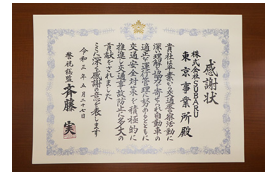 感謝状
株式会社SUBARU
東京事業所殿
貴社は平素から交通警察活動に
深い理解と協力を寄せられ自動車の
適正な運行管理に努めるとともに
交通安全対策を積極的に
推進し交通事故防止に多大の
貢献をされました
よって深く感謝の意を表します
令和三年五月二十七日
警視総監 斉藤 実